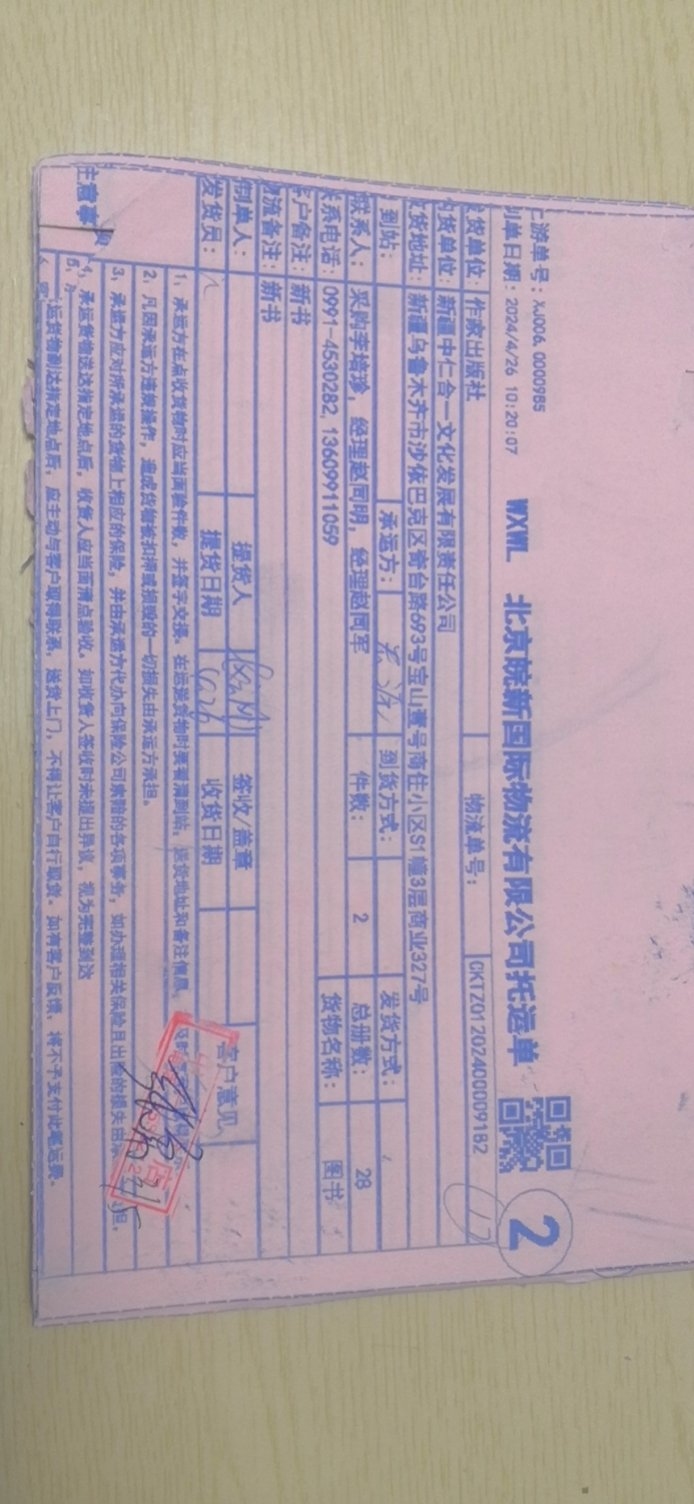 游单号：XJ006.0000985
单日期：2024/4/26 10:20:07
WXWL 北京皖新国际物流有限公司托运单
2
货单位：作家出版社
物流单号：
CKTZ01202400009182
货单位：新疆中仁合一文化发展有限责任公司
货地址：新疆乌鲁木齐市沙依巴克区奇台路693号宝山壹号商住小区S1幢3层商业327号
到站：
承运方：
到货方式：
发货方式：
联系人：采购李培珍，经理赵同明，经理赵同军
件数：
2
总册数：
28
系电话：0991-4530282，13609911059
货物名称：
图书
客户备注：新书
物流备注：新书
制单人：
提货人
签收/盖章
客户意见
发货员：
提货日期
收货日期
注意事项
1、承运方在点收货物时应当面验件数，并签字交接。在运送货物时要看清到站、送货地址和备注信息
2、凡因承运方违规操作，造成货物被扣押或损毁的一切损失由承运方承担。
3、承运方应对所承运的货物上相应的保险，并由承运方代办向保险公司索赔的各项事务，如办理相关保险且出险的损失由承 担。
4、承运货物送达指定地点后，收货人应当面清点验收，如收货人签收时未提出异议，视为完整到达
5、
运货物到达指定地点后，应主动与客户取得联系，送货上门，不得让客户自行取货。如有客户反馈，将不予支付此笔运费。